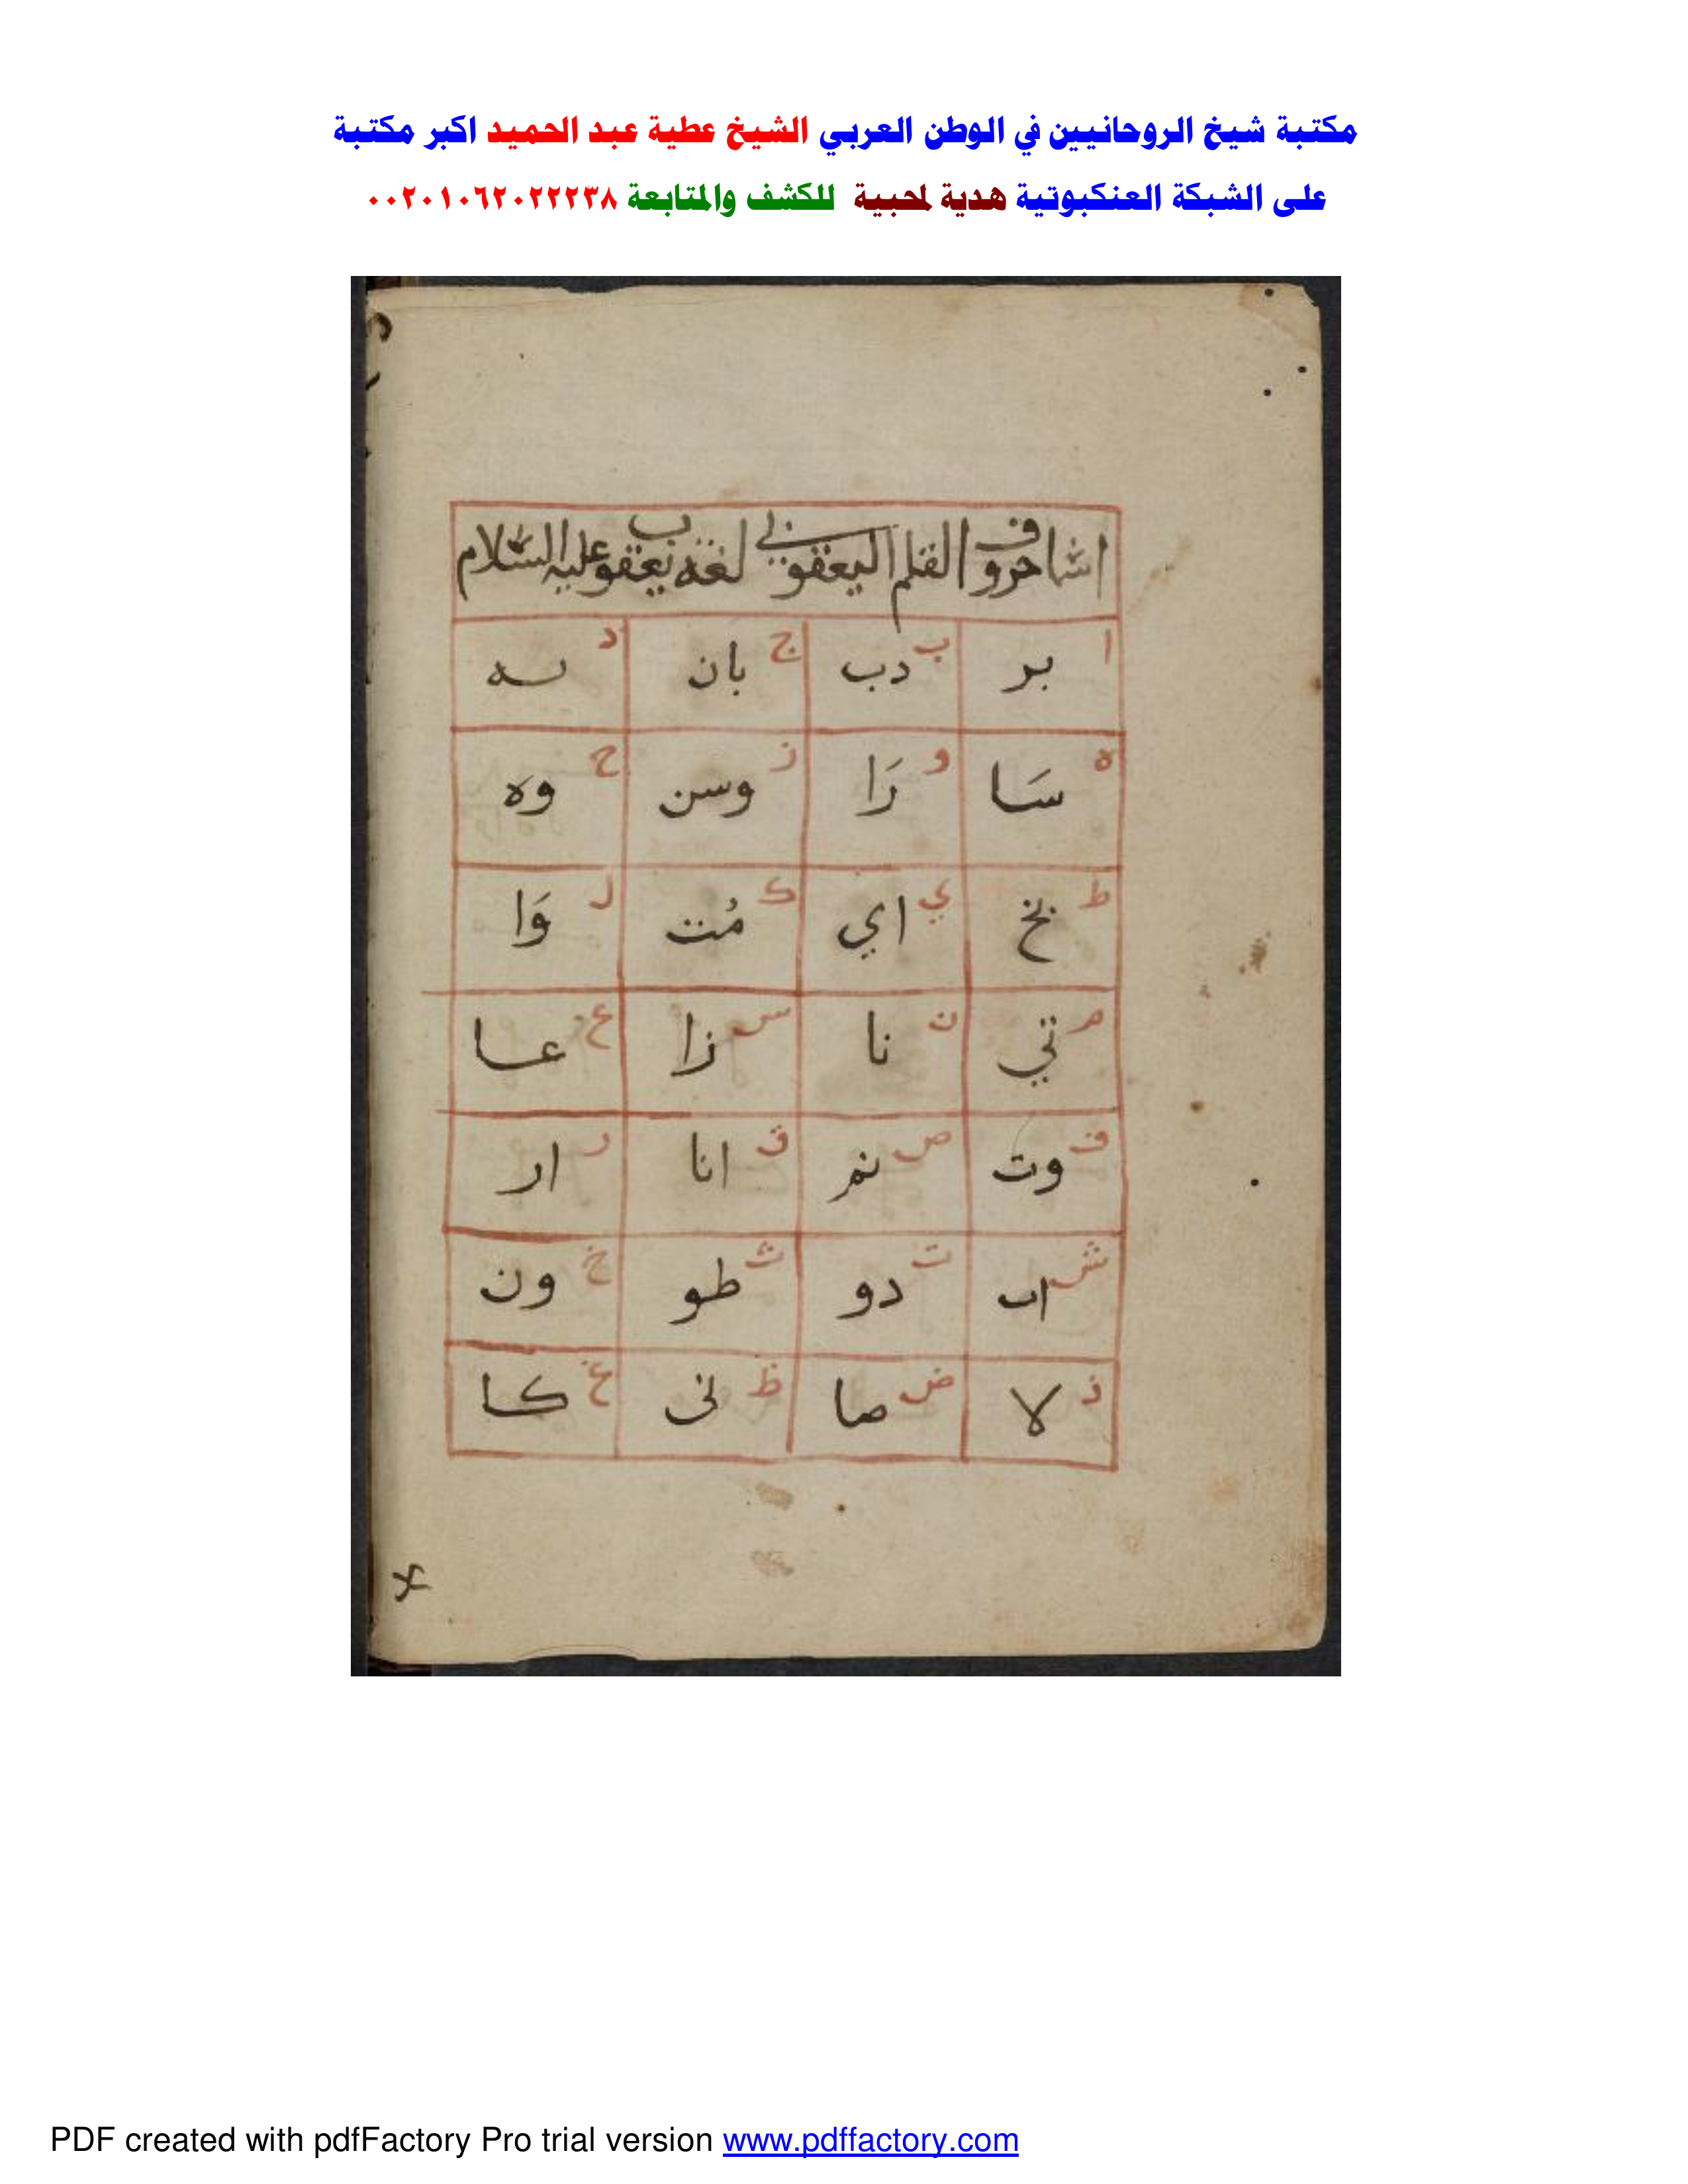 مكتبة شيخ الروحانيين في الوطن العربي الشيخ عطية عبد الحميد اكبر مكتبة
على الشبكة العنكبوتية هدية لمحبية للكشف والمتابعة ٠٠٢٠١٠٦٢٠٢٢٢٣٨
اشا حروف القلم اليعقوبي لغة يعقوب عليه السلام
ا بر ب دب ج بان د سه
ه سَا و رَا ز وسن ح وه
ط بخ ي اي ك مُت ل وَا
م تي ن نا س زا ع عا
ف وت ص نم ق انا ر ار
ش اب ت دو ث طو خ ون
ذ لا ض صا ظ نى غ كا
PDF created with pdfFactory Pro trial version www.pdffactory.com